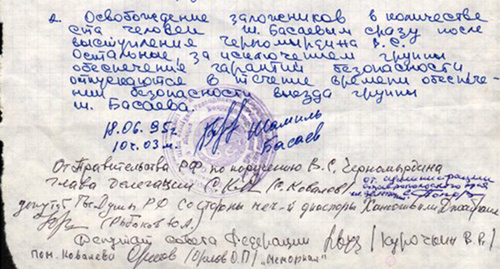 2. Освобождение заложников в количестве
ста человек Ш. Басаевым сразу после
выступления Черномырдина В.С.
Остальные за исключением группы
обеспечения гарантий безопасности
отпускаются в течение времени обеспече-
ния безопасности выезда группы
Ш. Басаева.
18.06.95г. Шамиль
10ч.03м. Басаев
От Правительства РФ по поручению В.С. Черномырдина
глава делегации С. Ков (С. Ковалёв) от администрации
Ставропольского края
депутат Гос. Думы РФ со стороны чеч-й диаспоры
(Рыбаков Ю.А.)
Депутат Совета Федерации /Курочкин В.В./
пом. Ковалева Орлов (Орлов О.П.) "Мемориал"